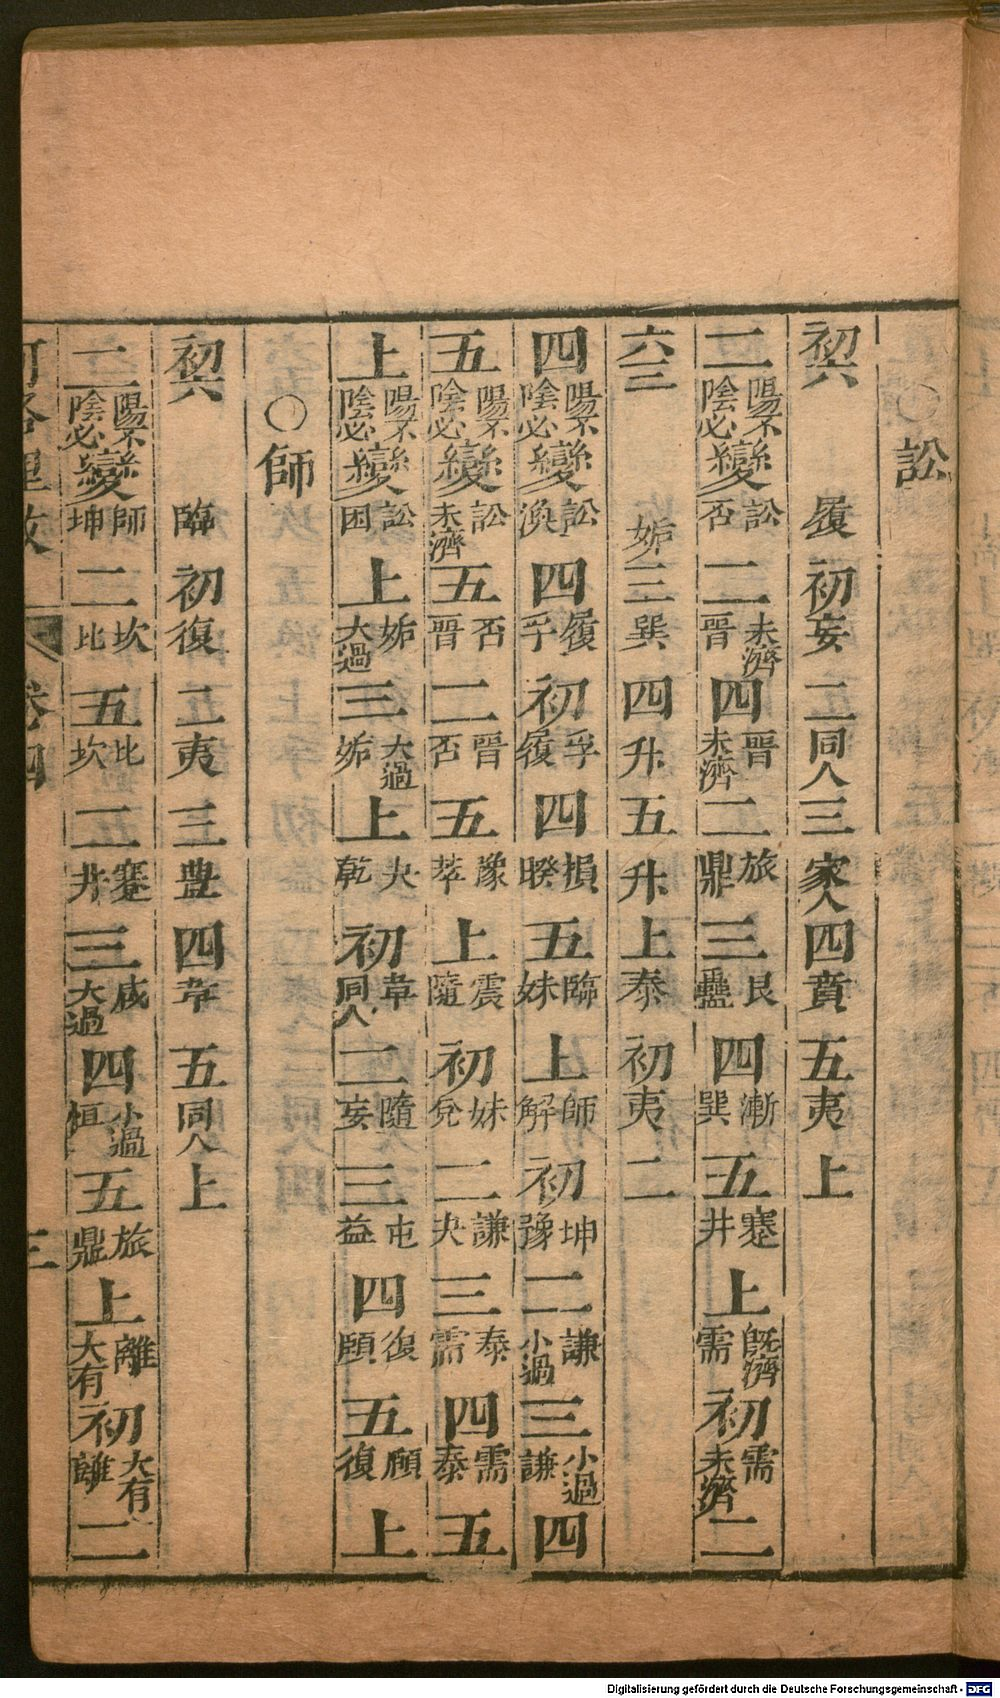 ○訟
初六 履 初妄二同人三家人四賁五夷上
二陽不陰必變訟否二未濟晉四晉未濟二旅鼎三艮蠱四漸巽五蹇井上既濟需初需未濟二
六三 姤三巽四升五升上泰初夷二
四陽不陰必變訟渙四履孚初孚履四損暌五臨妹上師解初坤豫二謙小過三小過謙四
五陽不陰必變訟未濟五否晉二晉否五豫萃上震隨初妹兌二謙夬三泰需四需泰五
上陽不陰必變訟困上姤大過三大過姤上夬乾初革同人二隨妄三屯益四復頤五頤復上
○師
初六 臨 初復二夷三豊四革五同人上
二陽不陰必變師坤二坎比五比坎二蹇井三咸大過四小過恒五旅鼎上離大有初大有離二
卷四 三
Digitalisierung gefördert durch die Deutsche Forschungsgemeinschaft - DFG